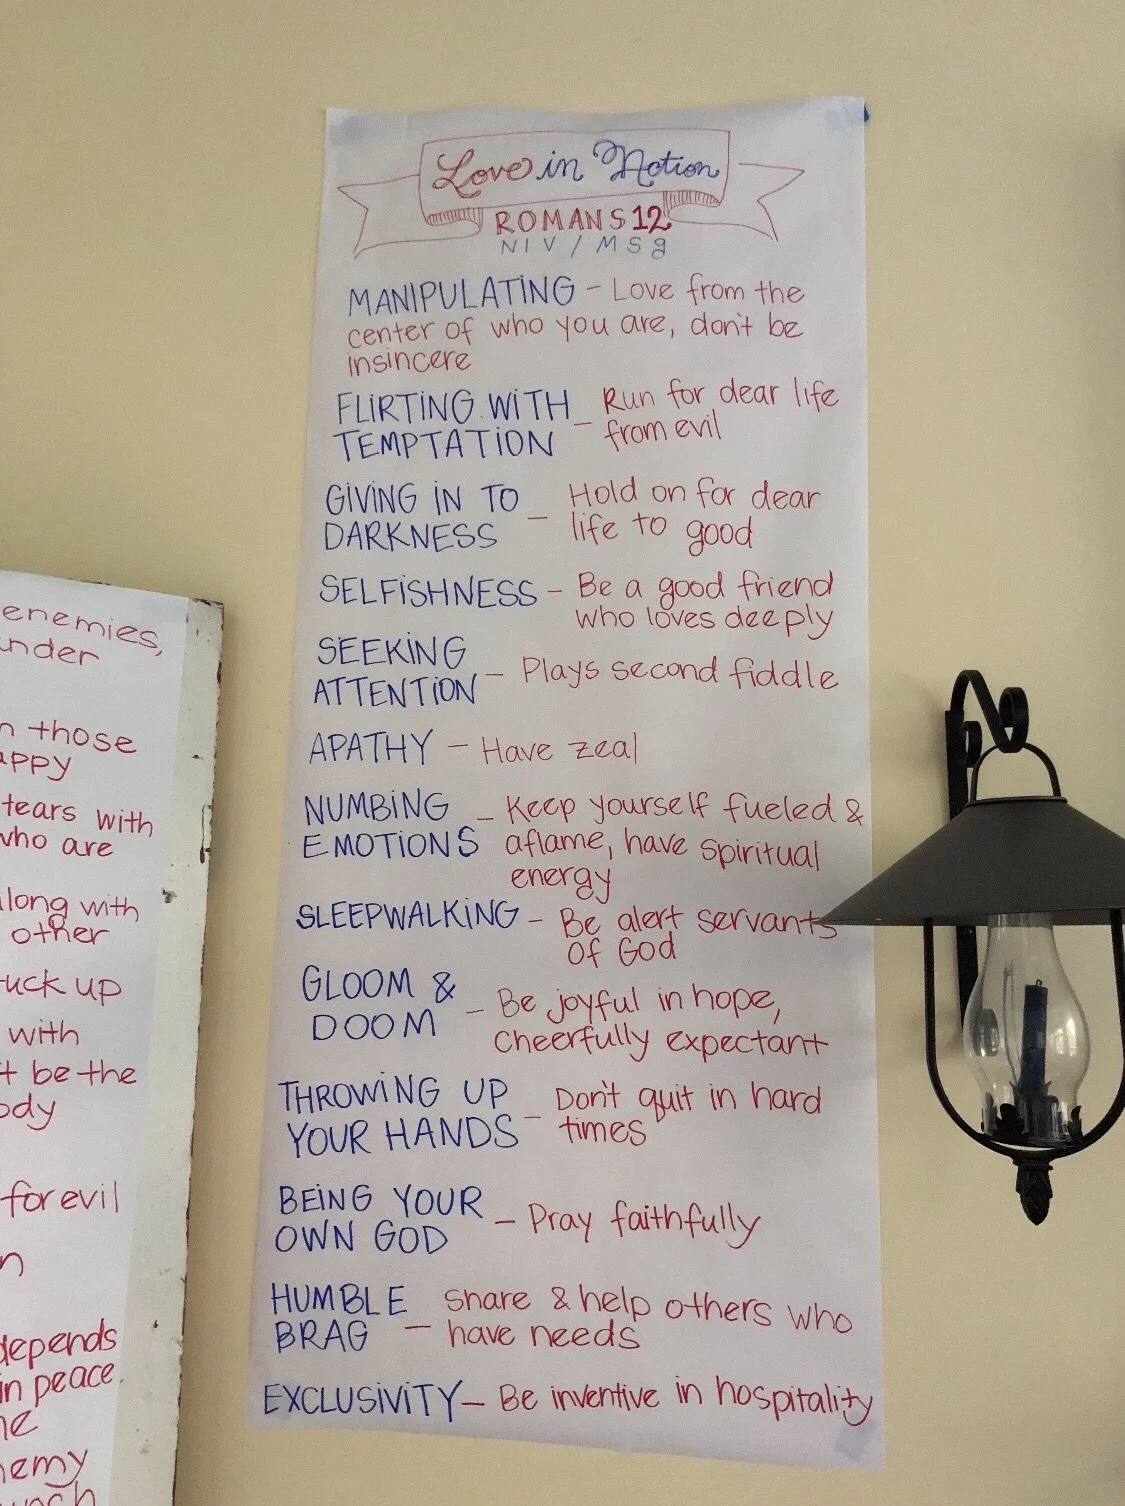 Love in Motion
ROMANS 12
NIV / MSG
MANIPULATING - Love from the
center of who you are, don't be
insincere
FLIRTING WITH
TEMPTATION - Run for dear life
from evil
GIVING IN TO
DARKNESS - Hold on for dear
life to good
SELFISHNESS - Be a good friend
who loves deeply
SEEKING
ATTENTION - Plays second fiddle
APATHY - Have zeal
NUMBING
EMOTIONS - Keep yourself fueled &
aflame, have spiritual
energy
SLEEPWALKING - Be alert servants
of God
GLOOM &
DOOM - Be joyful in hope,
cheerfully expectant
THROWING UP
YOUR HANDS - Don't quit in hard
times
BEING YOUR
OWN GOD - Pray faithfully
HUMBLE
BRAG - Share & help others who
have needs
EXCLUSIVITY - Be inventive in hospitality
enemies,
under
those
tears with
who are
with
other
up
with
be the
for evil
depends
in peace.